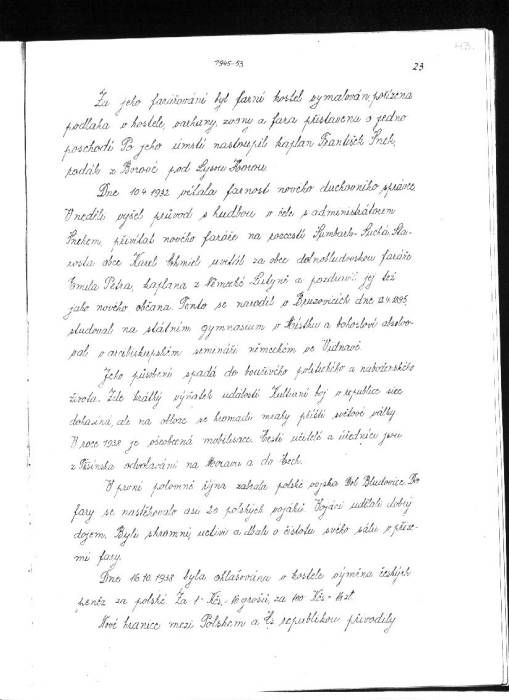 43.
1945-53
23
Za jeho farářování byl farní kostel vymalován, pořízena
podlaha v kostele, varhany, zvony a fara přestavena o jedno
poschodí. Po jeho úmrtí nastoupil kaplan František Šnek,
rodák z Borové pod Lysou Horou.
Dne 10.4.1932 vítala farnost nového duchovního správce
V neděli vyšel průvod s hudbou v čele s administrátorem
Šnekem, přivítat nového faráře na rozcestí Šumbark-Suchá. Sta-
rosta obce Karel Chmiel uvítal za obce dolnobludovskou faráře
Emila Petra, kaplana z Německé Lutyně a pozdravil jej též
jako nového občana. Tento se narodil v Bruzovicích dne 1895
studoval na státním gymnasium v Místku a bohosloví absolvo-
val v arcibiskupském semináři německém ve Vidnavě.
Jeho působení spadá do bouřlivého politického a náboženského
života. Zde krátký výňatek událostí Kulturní boj v republice sice
dotasíná, ale na obloze se hromadí mraky příští světové války
V roce 1938 je všeobecná mobilisace. Čestí učitelé a úředníci jsou
z Těšínska odvoláváni na Moravu a do Čech.
V první polovině října zabrala polské vojska Dol. Bludovice. Do
fary se nastěhovalo asi 20 polských vojáků. Vojáci udělali dobrý
dojem. Byli skromní, uctiví a dbali o čistotu svého sálu v příze-
mí fary.
Dne 16.10.1938 byla ohlašována v kostele výměna českých
peněz za polské. Za 1- Kčs - 16 grošů, za 100 Kčs - 16 zł
Nové hranice mezi Polskem a Čs republikou přivodily